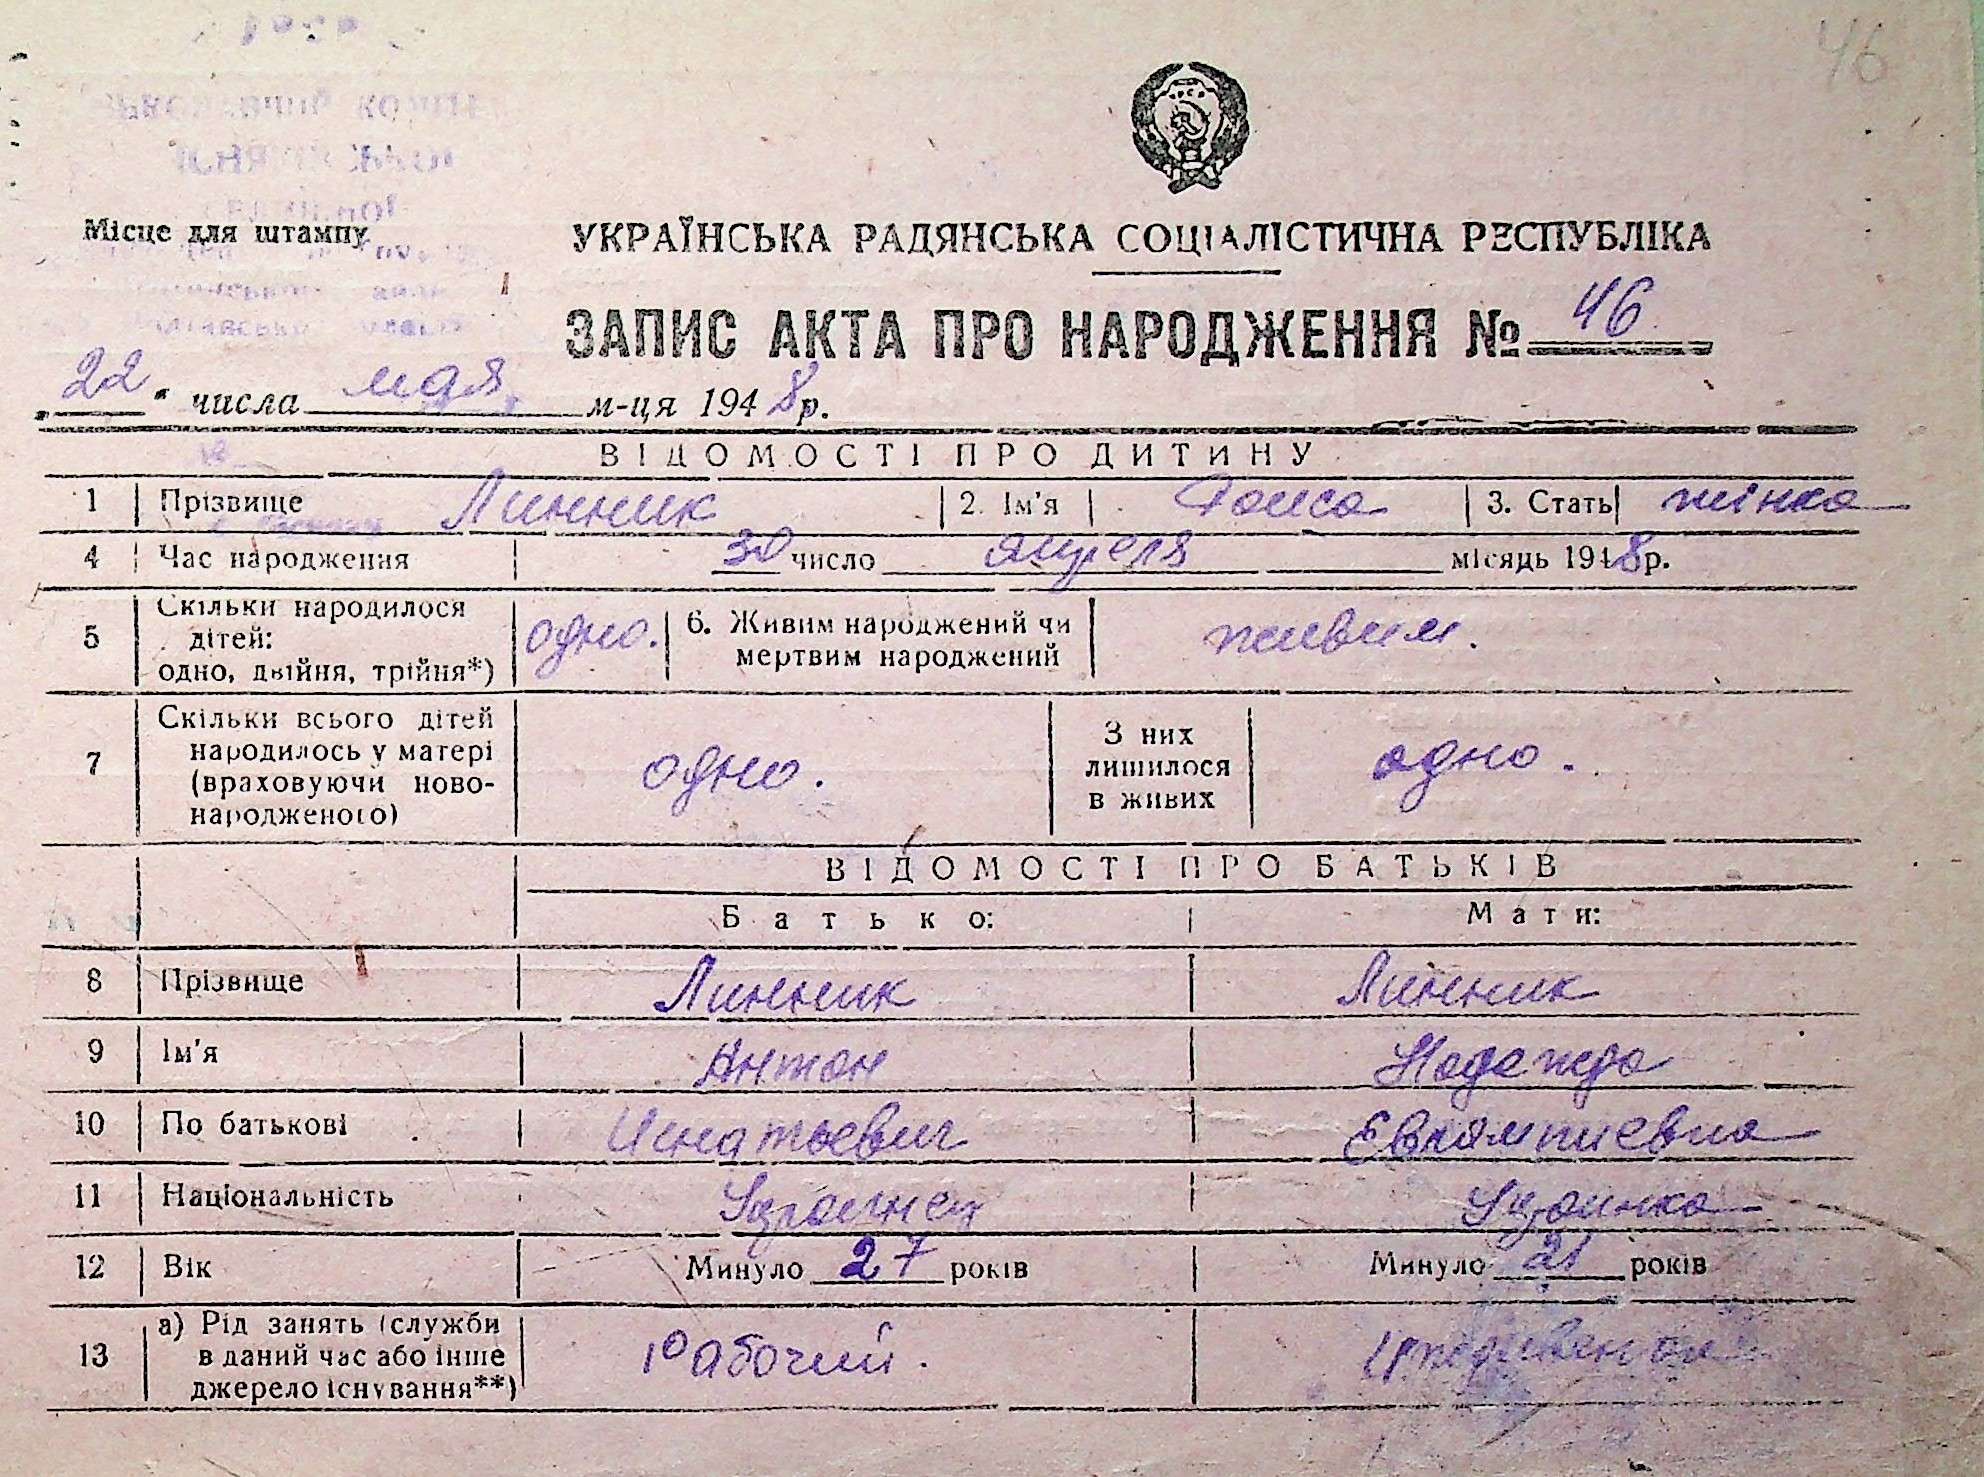 46
Місце для штампу
УКРАЇНСЬКА РАДЯНСЬКА СОЦІАЛІСТИЧНА РЕСПУБЛІКА
ЗАПИС АКТА ПРО НАРОДЖЕННЯ № 46
"22" числа мая м-ця 1948 р.
ВІДОМОСТІ ПРО ДИТИНУ
1 Прізвище Линник 2. Ім'я Раиса 3. Стать жінка
4 Час народження 30 число апреля місяць 1948 р.
5 Скільки народилося дітей: одно, двійня, трійня*) одно. 6. Живим народжений чи мертвим народжений живим.
7 Скільки всього дітей народилось у матері (враховуючи новонародженого) одно. З них лишилося в живих одно.
ВІДОМОСТІ ПРО БАТЬКІВ
Батько: Мати:
8 Прізвище Линник Линник
9 Ім'я Антон Надежда
10 По батькові Игнатьевич Евлампиевна
11 Національність Украинец
12 Вік Минуло 27 років Минуло 21 років
13 а) Рід занять (служби в даний час або інше джерело існування**) Рабочий.